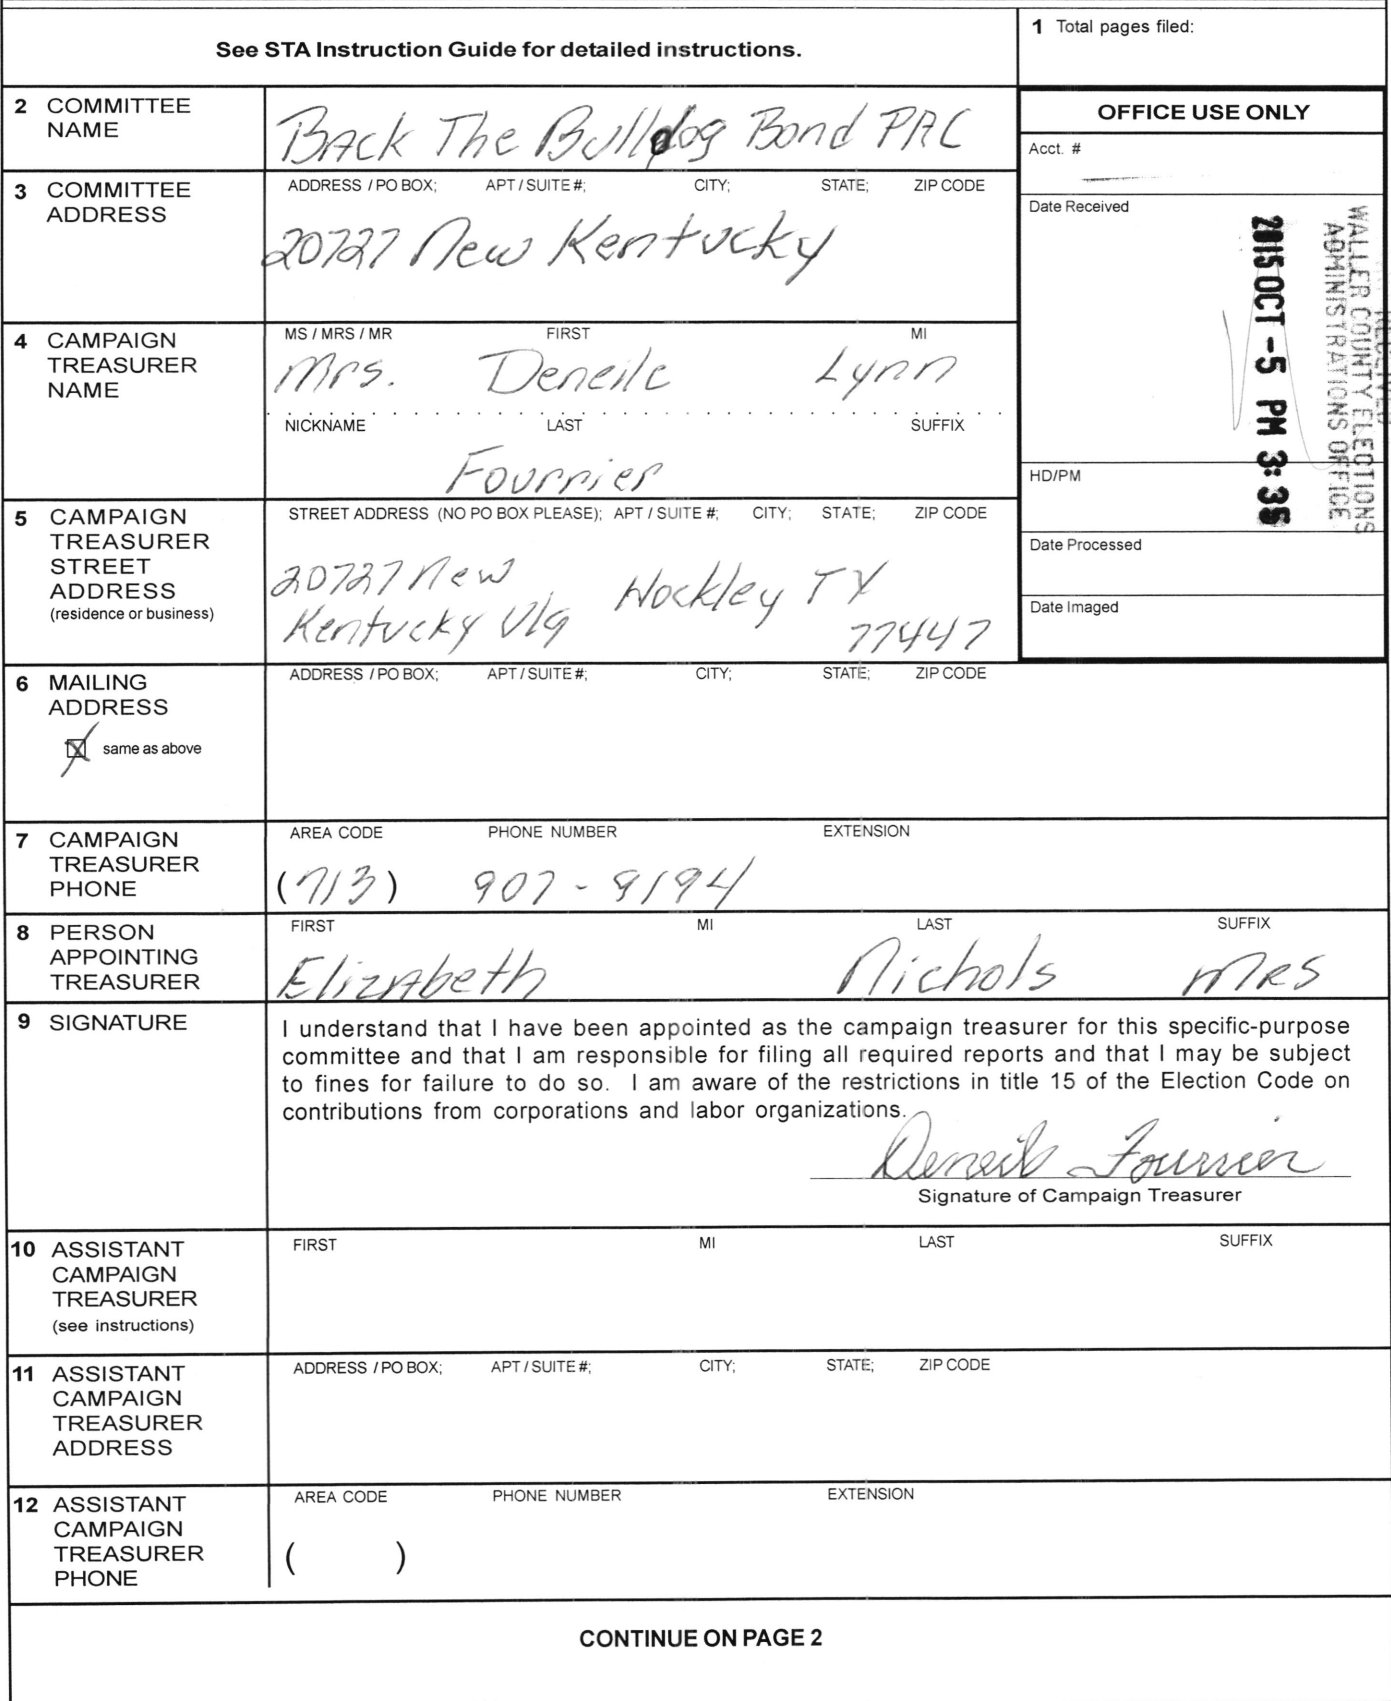 See STA Instruction Guide for detailed instructions.
1 Total pages filed:
2 COMMITTEE
NAME
Back The Bulldog Bond PAC
OFFICE USE ONLY
Acct. #
3 COMMITTEE
ADDRESS
ADDRESS / PO BOX; APT / SUITE #; CITY; STATE; ZIP CODE
20727 New Kentucky
Date Received
RECEIVED
WALLER COUNTY ELECTIONS
ADMINISTRATIONS OFFICE
2015 OCT -5 PM 3:36
4 CAMPAIGN
TREASURER
NAME
MS / MRS / MR FIRST MI
Mrs. Deneile Lynn
NICKNAME LAST SUFFIX
Fourrier
HD/PM
5 CAMPAIGN
TREASURER
STREET
ADDRESS
(residence or business)
STREET ADDRESS (NO PO BOX PLEASE); APT / SUITE #; CITY; STATE; ZIP CODE
20727 New
Kentucky Vlg Hockley TX
77447
Date Processed
Date Imaged
6 MAILING
ADDRESS
same as above
ADDRESS / PO BOX; APT / SUITE #; CITY; STATE; ZIP CODE
7 CAMPAIGN
TREASURER
PHONE
AREA CODE PHONE NUMBER EXTENSION
(713) 907-9194
8 PERSON
APPOINTING
TREASURER
FIRST MI LAST SUFFIX
Elizabeth Nichols MRS
9 SIGNATURE
I understand that I have been appointed as the campaign treasurer for this specific-purpose
committee and that I am responsible for filing all required reports and that I may be subject
to fines for failure to do so. I am aware of the restrictions in title 15 of the Election Code on
contributions from corporations and labor organizations.
Deneile Fourrier
Signature of Campaign Treasurer
10 ASSISTANT
CAMPAIGN
TREASURER
(see instructions)
FIRST MI LAST SUFFIX
11 ASSISTANT
CAMPAIGN
TREASURER
ADDRESS
ADDRESS / PO BOX; APT / SUITE #; CITY; STATE; ZIP CODE
12 ASSISTANT
CAMPAIGN
TREASURER
PHONE
AREA CODE PHONE NUMBER EXTENSION
( )
CONTINUE ON PAGE 2